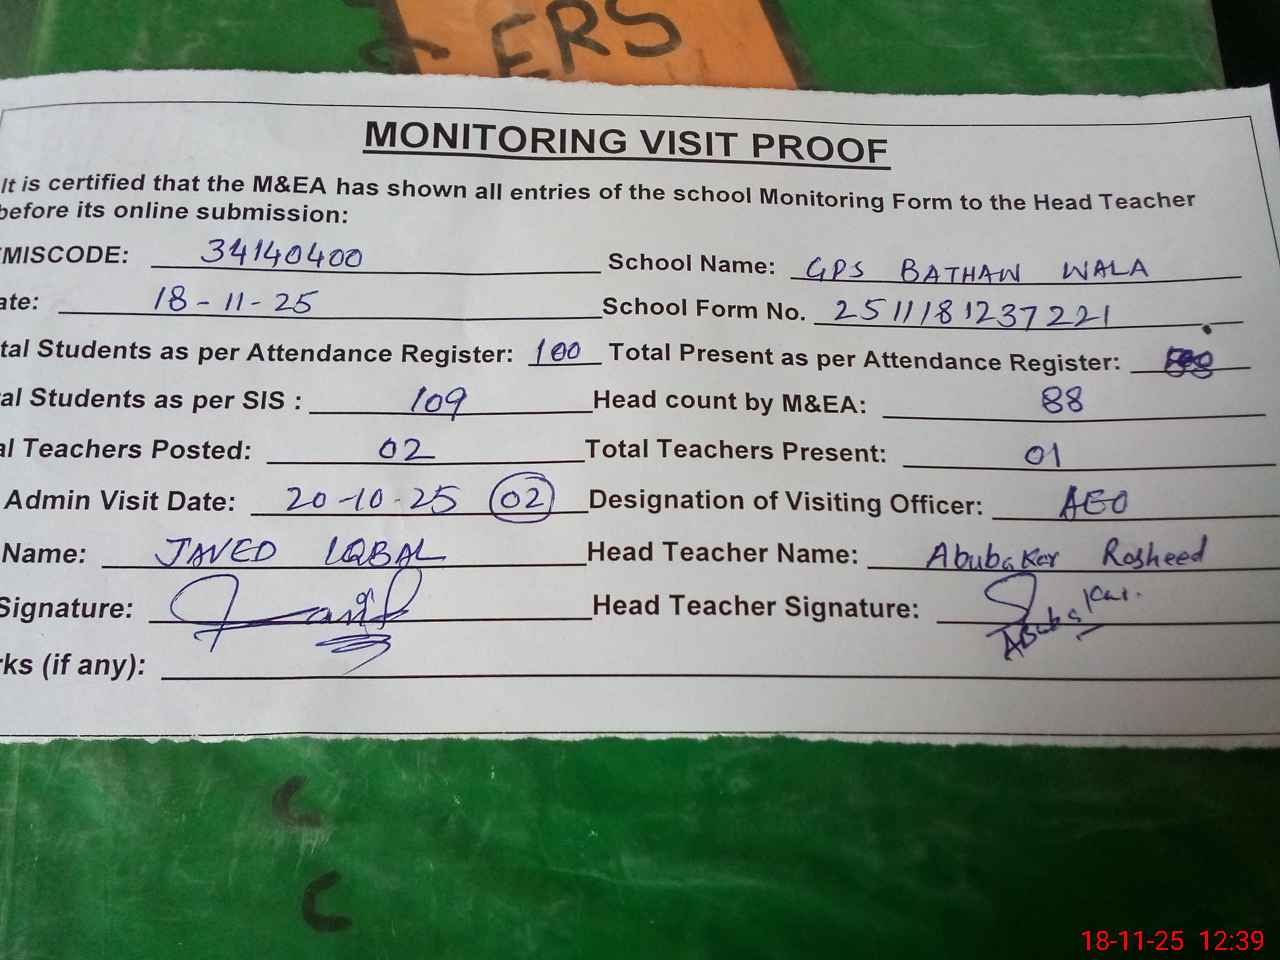 ERS
MONITORING VISIT PROOF
It is certified that the M&EA has shown all entries of the school Monitoring Form to the Head Teacher
before its online submission:
MISCODE: 34140400 School Name: GPS BATHAW WALA
ate: 18-11-25 School Form No. 2511181237221
tal Students as per Attendance Register: 100 Total Present as per Attendance Register:
al Students as per SIS : 109 Head count by M&EA: 88
al Teachers Posted: 02 Total Teachers Present: 01
Admin Visit Date: 20-10-25 02 Designation of Visiting Officer: AEO
Name: JAVED IQBAL Head Teacher Name: Abubaker Rasheed
Signature: Head Teacher Signature: Abubakar.
rks (if any):
C
C
18-11-25 12:39